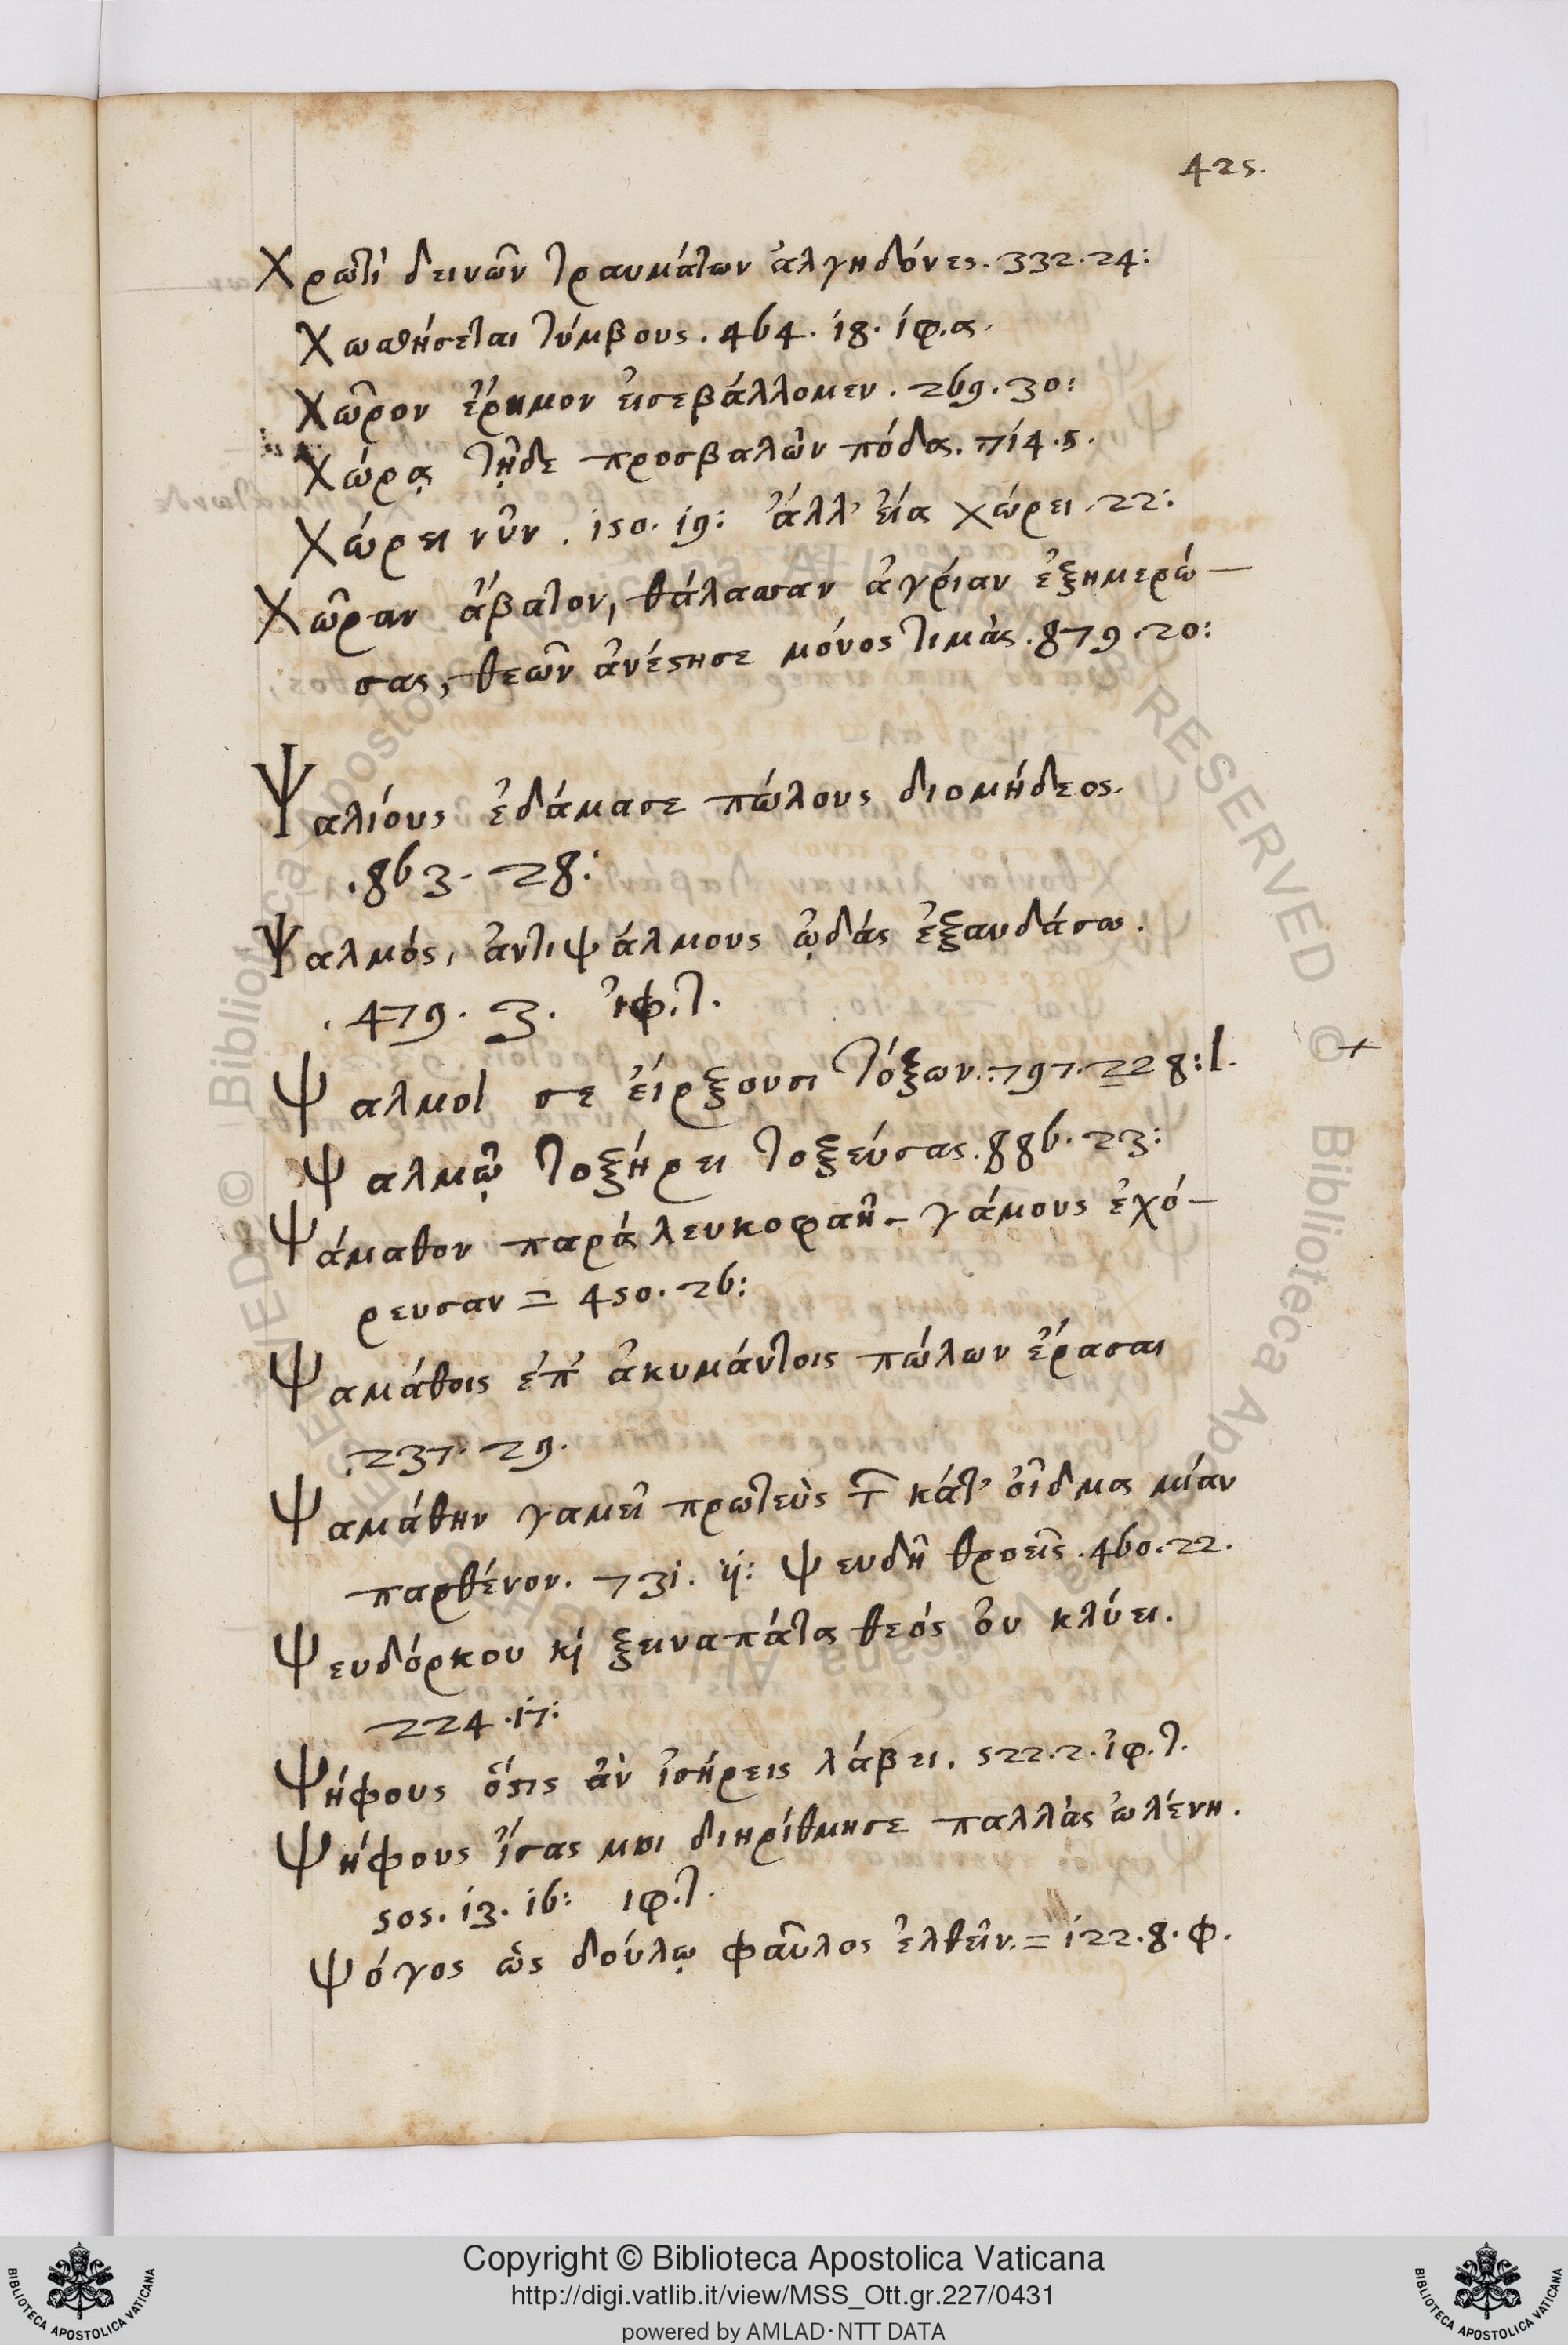 425.
Χρωτὶ δεινῶν τραυμάτων ἀλγηδόνες. 332. 24:
Χωσθήσεται τύμβους. 464. 18. ἰφ.α.
Χῶρον ἔρημον εἰσεβάλλομεν. 269. 30:
Χώρᾳ τῇδε προσβαλὼν πόδα. 714. 5.
Χώρει νῦν. 150. 19: ἀλλ' εἶα χώρει. 22:
Χῶραν ἄβατον, θάλασσαν ἀγρίαν ἐξημερώ—
σας, θεῶν ἀνέστησε μόνος τιμὰς. 879. 20:
Ψαλίους ἐδάμασε πώλους διομήδεος.
. 863. 28:
Ψαλμός, ἀντιψάλμους ᾠδάς ἐξαυδάσω.
. 479. 3. ἰφ.τ.
Ψαλμοὶ σε εἴρξουσι τόξων. 797. 22 8:
Ψαλμῷ τοξήρει τοξεύσας. 886. 23:
Ψάμαθον παρὰ λευκοφαῆ – γάμους ἐχό—
ρευσαν = 450. 26:
Ψαμάθοις ἐπ' ἀκυμάντοις πώλων ἔρασαι
. 237. 29.
Ψαμάθην γαμεῖ πρωτεὺς κατ' οἶδμα μίαν
παρθένον. 731. 11: Ψευδῆ θροεῖς. 460. 22.
Ψευδόρκου κὶ ξειναπάτα θεός οὐ κλύει.
224. 17:
Ψήφους ὅστις ἂν ἰσήρεις λάβει. 522. 2. ἰφ.τ.
Ψήφους ἴσας μοι διηρίθμησε παλλὰς ὠλένη.
505. 13. 16: ιφ.τ.
Ψόγος ὡς δούλῳ φαῦλος ἐλθεῖν = 122. 8. φ.
Copyright © Biblioteca Apostolica Vaticana
http://digi.vatlib.it/view/MSS_Ott.gr.227/0431
powered by AMLAD·NTT DATA